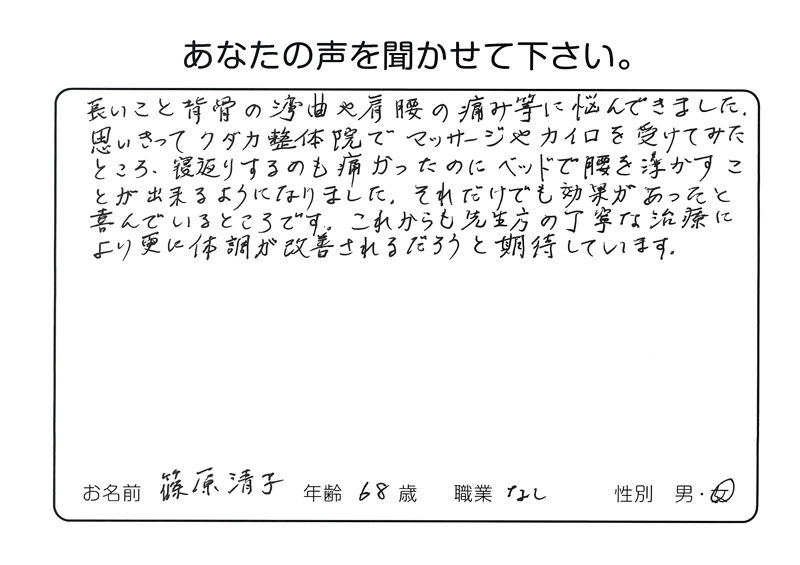 あなたの声を聞かせて下さい。
長いこと背骨の湾曲や肩腰の痛み等に悩んできました。
思いきってクダカ整体院でマッサージやカイロを受けてみた
ところ、寝返りするのも痛かったのにベッドで腰を浮かすこ
とが出来るようになりました。それだけでも効果があったと
喜んでいるところです。これからも先生方の丁寧な治療に
より更に体調が改善されるだろうと期待しています。
お名前 篠原清子 年齢 68 歳 職業 なし 性別 男・女